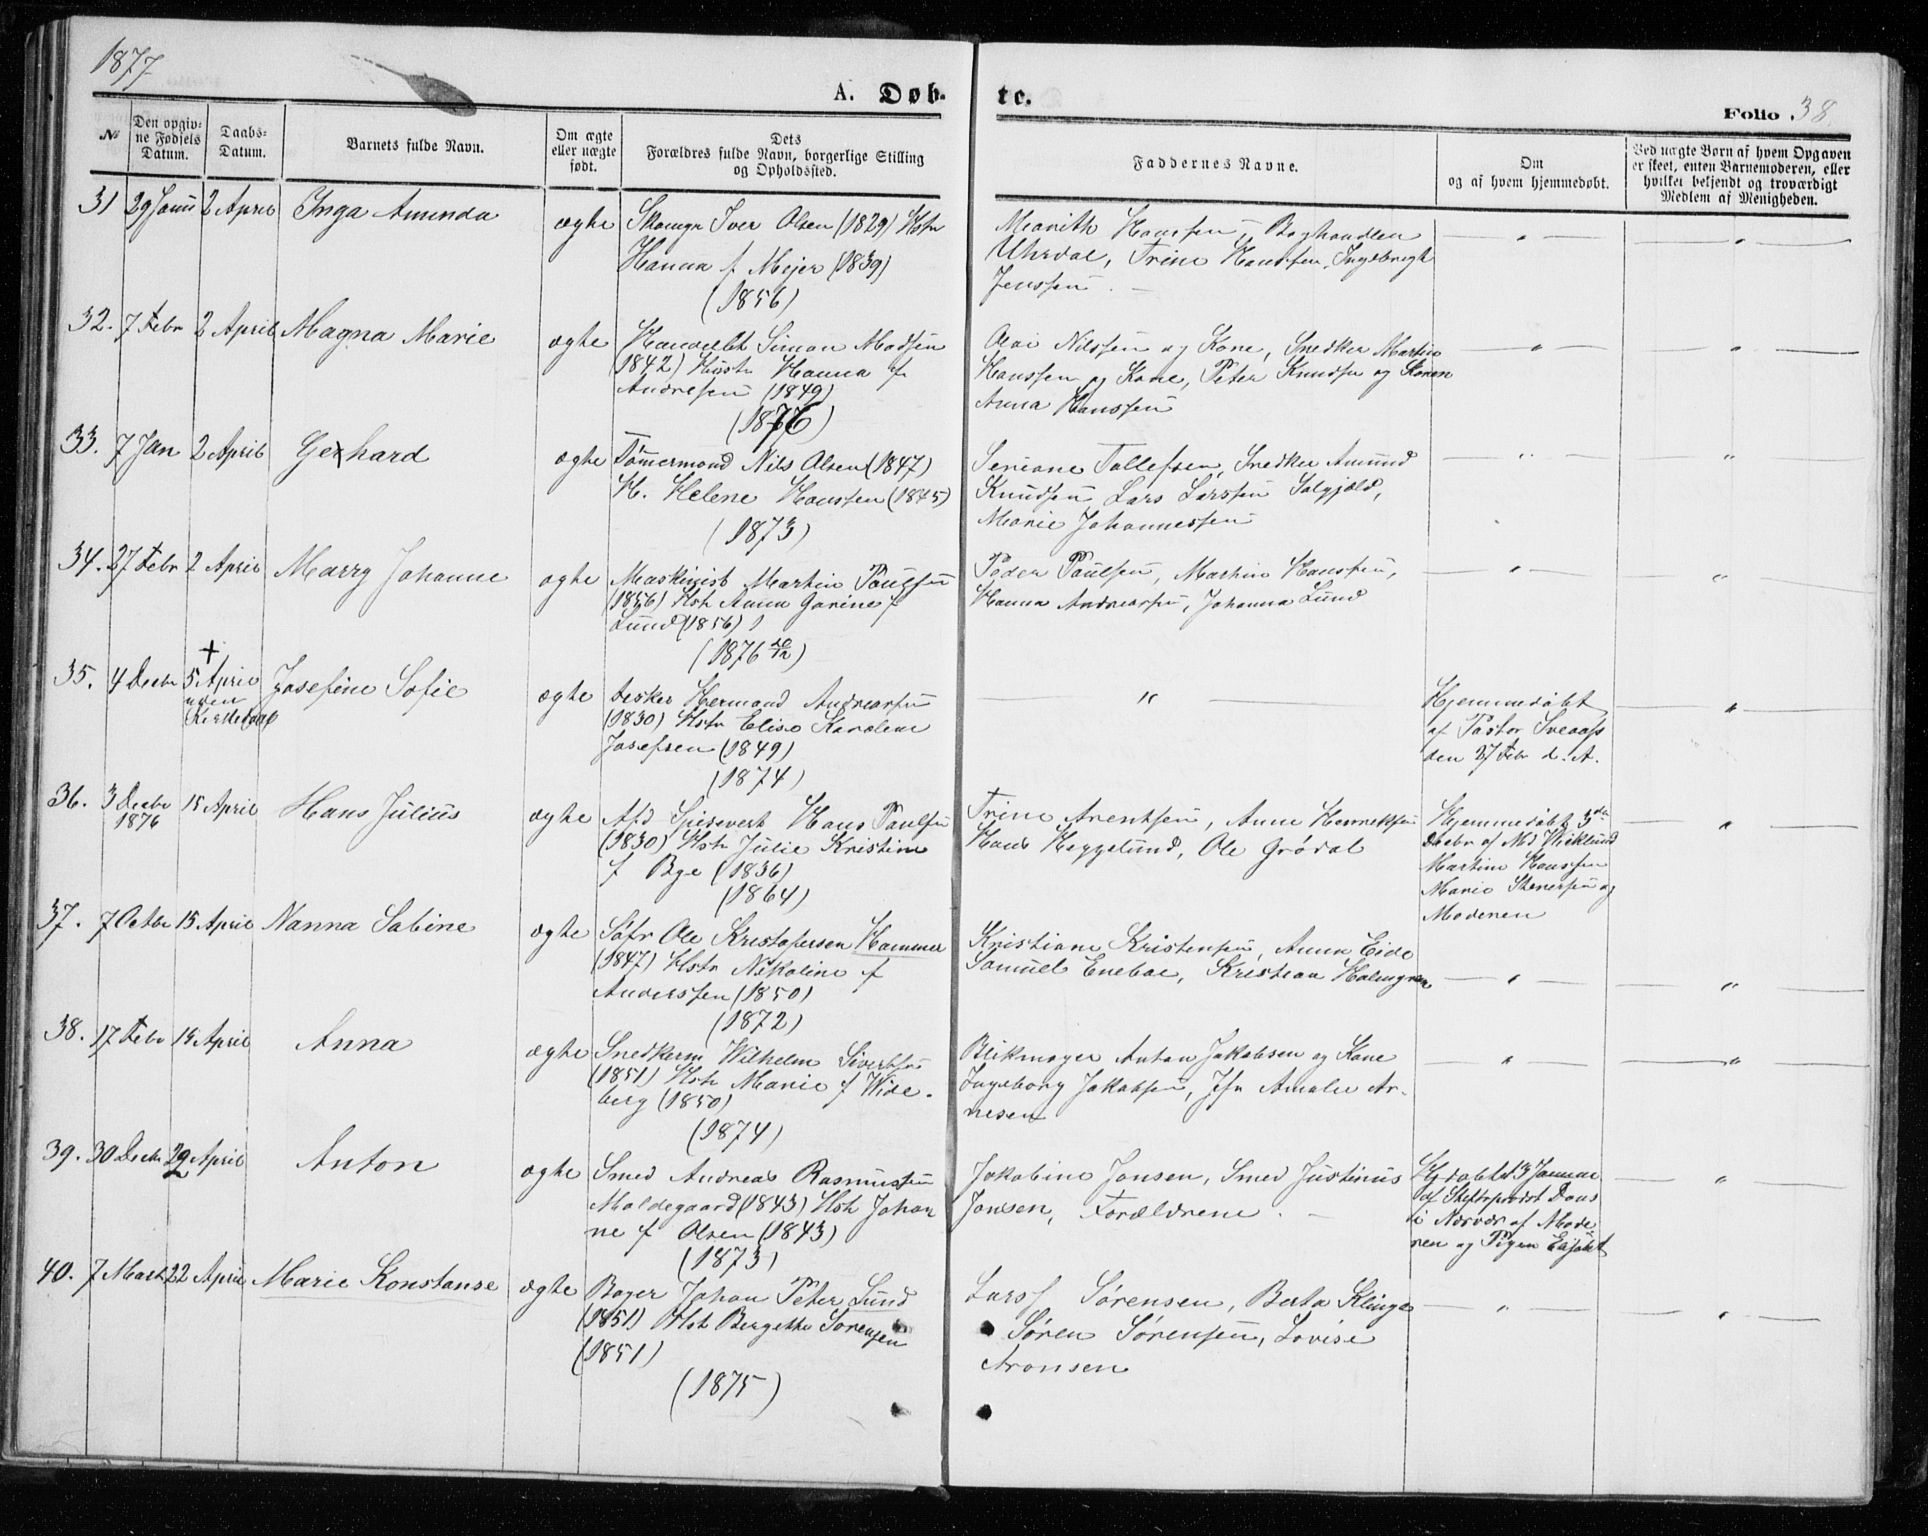 1877
A. Døb-
te.
Folio 38.
№
Den opgiv-
ne Fødsels
Datum.
Daabs-
Datum.
Barnets fulde Navn.
Om ægte
eller uægte
født.
Dets
Forældres fulde Navn, borgerlige Stilling
og Opholdssted.
Faddernes Navne.
Om
og af hvem hjemmedøbt.
Ved uægte Børn af hvem Opgaven
er skeet, enten Barnemoderen, eller
hvilket bekjendt og troværdigt
Medlem af Menigheden.
31 29 Janu 2 April Inga Aminda ægte
Iver Olsen (1829) Hstr
Hanna f Mejer (1839)
(1856)
Hanssen, Boghandler
Uhrdal, Trine Hanssen, Ingebrigt
Jenssen.
32. 7 Febr 2 April Magna Marie ægte
Simon Madsen
(1842) Hustr Hanna f
Andresen (1849)
(1876)
Olai Nilssen og Kone, Snedker Martin
Hanssen og Kone, Peter Knudsen og Konen
Anna Hanssen
33. 7 Jan 2 April Gerhard ægte
Tømermand Nils Olsen (1847)
H. Helene Hanssen (1845)
(1873)
Seriane Tollefsen, Snedker Amund
Knudsen Lars Larssen Salgjæld,
Marie Johannessen
34. 27 Febr 2 April Marry Johanne ægte
Maskinist Martin Paulsen
(1856) Hstr Anna Garine f
Lund (1856)
(1876 )
Peder Paulsen, Martin Hanssen,
Hanna Andreassen, Johanna Lund
35. 4 Decbr + 5 April Josefine Sofie ægte
uden
Kirkedaab
Hermand Andreassen
(1830) Hstr Elise Karoline
Josefsen (1849)
(1874)
Hjemmedøbt
af Pastor Sveaas
den 27 Febr d. A.
36. 3 Decbr 15 April Hans Julius ægte
1876
Afd Spisevert Hans Paulsen
(1830) Hstr Julie Kristine
f Bye (1836)
(1864)
Trine Arentsen, Anne Henriksen
Hans Heggelund, Ole Grødal
Hjemmedøbt 3die
Decbr af Md Wicklund
Martine Hanssen
Marie Stenersen og
Moderen
37. 7 Octbr 15 April Nanna Sabine ægte
Ole Kristofersen Hammer
(1847) Hstr Nikoline f
Anderssen (1850)
(1872)
Kristiane Kristensen, Anna Eide
Samuel Enebae, Kristian Holmgren
38. 17 Febr 15 April Anna ægte
Snedkerm Wilhelm Sivertsen
(1851) Hstr Marie f Wide-
berg (1850)
(1874)
Blikmager Anton Jakobsen og Kone
Ingeborg Jakobsen, Jfr Amalie Ar-
nesen
39. 30 Decbr 22 April Anton ægte
Smed Andreas Rasmussen
Moldegaard (1843) Hstr Johan
ne f Olsen (1843)
(1873)
Jakobine Jonsen, Smed Justinus
Jonsen, Forældrene.
Hjdøbt 13 Januar
af Stiftsprovst Daus
i Nærvær af Mode-
ren og Pigen Elisabet
40. 7 Marts 22 April Marie Konstanse ægte
Bager Johan Peter Lund
(1851) Hstr Bergitte Sørensen
(1851)
(1875)
Lars Sørensen, Berta Klinge
Søren Sørensen, Lovise
Aronsen